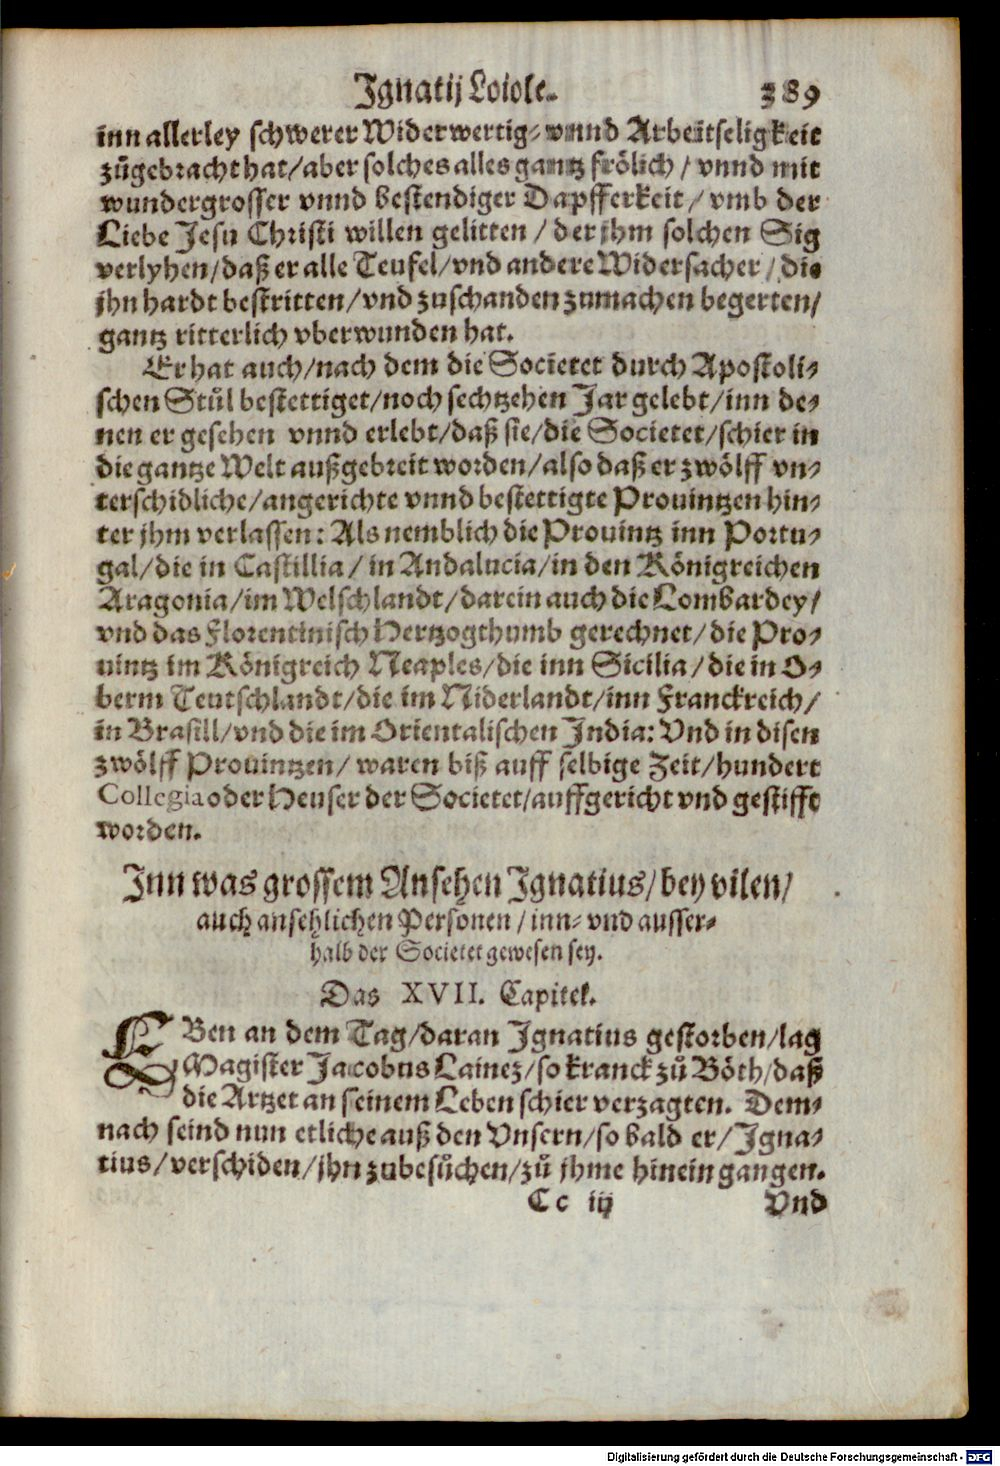 Ignatij Loiole.
389
inn allerley schwerer Widerwertig- vnnd Arbeitseligkeit
zůgebracht hat/aber solches alles gantz frölich / vnnd mit
wundergrosser vnnd bestendiger Dapfferkeit / vmb der
Liebe Jesu Christi willen gelitten / der jhm solchen Sig
verlyhen/daß er alle Teufel/vnd andere Widersacher / die
jhn hardt bestritten/vnd zuschanden zumachen begerten/
gantz ritterlich vberwunden hat.
Er hat auch/nach dem die Societet durch Apostoli-
schen Stůl bestettiget/noch sechtzehen Jar gelebt/inn de-
nen er gesehen vnnd erlebt/daß sie/die Societet/schier in
die gantze Welt außgebreit worden/also daß er zwölff vn-
terschidliche/angerichte vnnd bestettigte Prouintzen hin-
ter jhm verlassen: Als nemblich die Prouintz inn Portu-
gal/die in Castillia / in Andalucia/in den Königreichen
Aragonia/im Welschlandt/darein auch die Lombardey/
vnd das Florentinisch Hertzogthumb gerechnet/die Pro-
uintz im Königreich Neaples/die inn Sicilia / die in O-
berm Teutschlandt/die im Niderlandt/inn Franckreich/
in Brasill/vnd die im Orientalischen India: Vnd in disen
zwölff Prouintzen/ waren biß auff selbige Zeit/hundert
Collegia oder Heuser der Societet/auffgericht vnd gestifft
worden.
Inn was grossem Ansehen Ignatius/bey vilen/
auch ansehlichen Personen / inn- vnd ausser-
halb der Societet gewesen sey.
Das XVII. Capitel.
EBen an dem Tag/daran Ignatius gestorben/lag
Magister Jacobus Lainez/so kranck zů Böth/daß
die Artzet an seinem Leben schier verzagten. Dem-
nach seind nun etliche auß den Vnsern/so bald er/Igna-
tius/verschiden/jhn zubesůchen/zů jhme hinein gangen.
Cc iij
Vnd
Digitalisierung gefördert durch die Deutsche Forschungsgemeinschaft - DFG